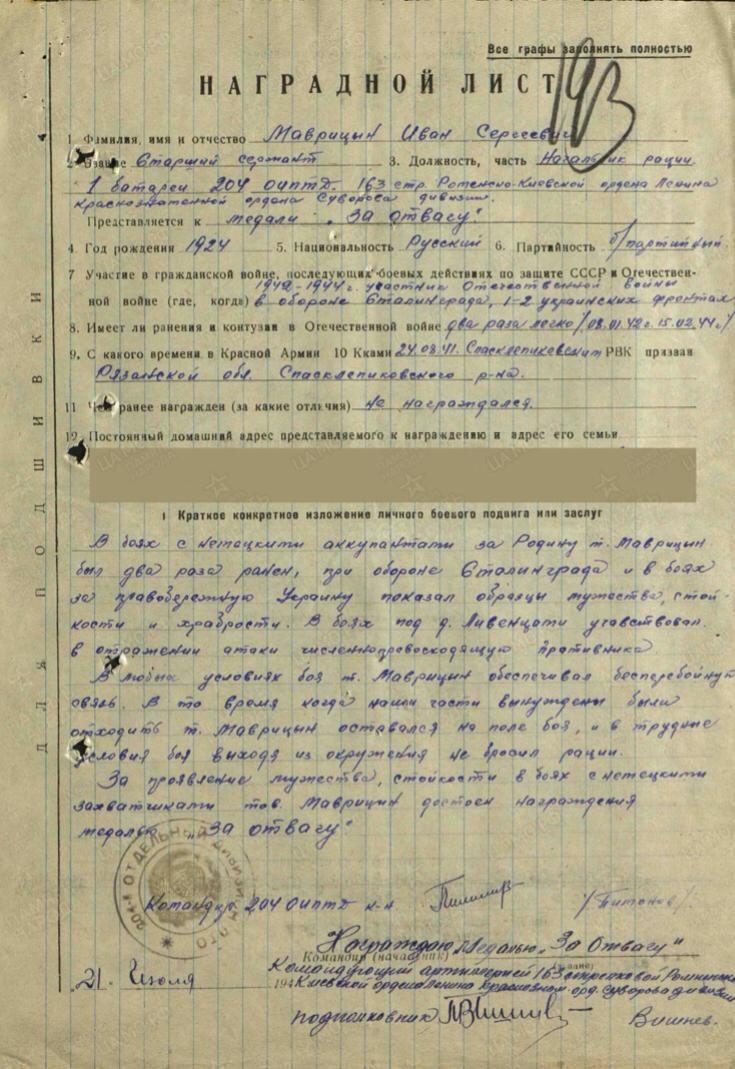 Все графы заполнять полностью
193
НАГРАДНОЙ ЛИСТ
1 Фамилия, имя и отчество Маврицын Иван Сергеевич
2 Звание Старший сержант 3. Должность, часть Начальник рации
1 батареи 204 оиптд. 163 стр. Ротенско-Киевской ордена Ленина
краснознаменной ордена Суворова дивизии.
Представляется к медали "За отвагу".
4 Год рождения 1924 5. Национальность Русский 6. Партийность б/партийный.
7 Участие в гражданской войне, последующих боевых действиях по защите СССР и Отечествен-
1942-1944 г. участник Отечественной войны
ной войне (где, когда) в обороне Сталинграда, 1-2 украинских фронтах
8. Имеет ли ранения и контузии в Отечественной войне два раза легко /08.01.42г. 15.02.44г./
9. С какого времени в Красной Армии 10 Кками 24.08.41. Спасклепиковским РВК призван
Рязанской обл. Спасклепиковского р-на.
11 Чем ранее награжден (за какие отличия) не награждался.
12. Постоянный домашний адрес представляемого к награждению и адрес его семьи
ДЛЯ ПОДШИВКИ
I Краткое конкретное изложение личного боевого подвига или заслуг
В боях с немецкими аккупантами за Родину т. Маврицын
был два раза ранен, при обороне Сталинграда и в боях
за правобережную Украину показал образцы мужества, стой-
кости и храбрости. В боях под д. Ливенцами учавствовал
в отражении атаки численнопревосходящую противника
В любых условиях боя т. Маврицын обеспечивал бесперебойную
связь. В то время когда наши части вынуждены были
отходить т. Маврицын оставался на поле боя, и в трудные
условия боя выходя из окружения не бросил рации.
За проявление мужества, стойкости в боях с немецкими
захватчиками тов. Маврицын достоен награждения
медалью "За отвагу".
204-й ОТДЕЛЬНЫЙ ДИВИЗИОН ПТО
Командир 204 оиптд к-н /Титонов/
Награждаю Медалью "За Отвагу"
Командир (начальник)
Командующий артиллерией 163 стрелковой Роменско
21 Июля 194 Киевской ордена Ленина Краснознам. орд. Суворова дивизии
подполковник Вишнев.